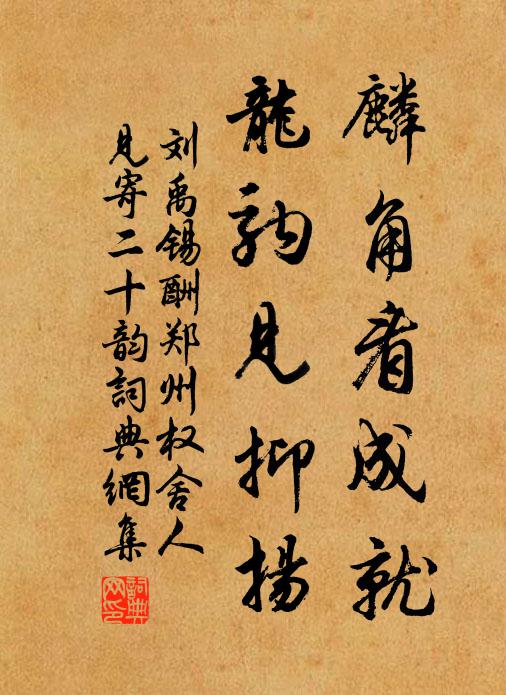 麟角看成就
龍駒见抑揚
刘禹锡酬郑州权舍人
见寄二十韵詞典網集
詞典网印